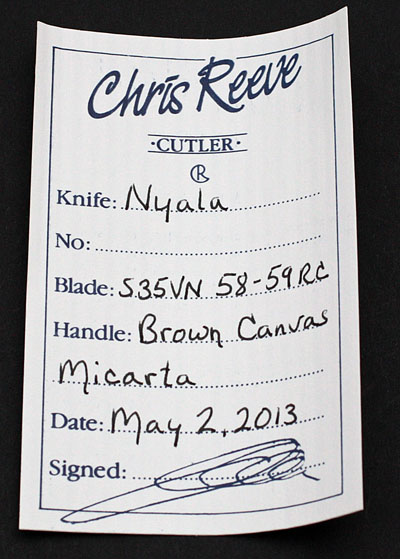 Chris Reeve
·CUTLER·
Knife: Nyala
No:
Blade: S35VN 58-59RC
Handle: Brown Canvas
Micarta
Date: May 2, 2013
Signed: